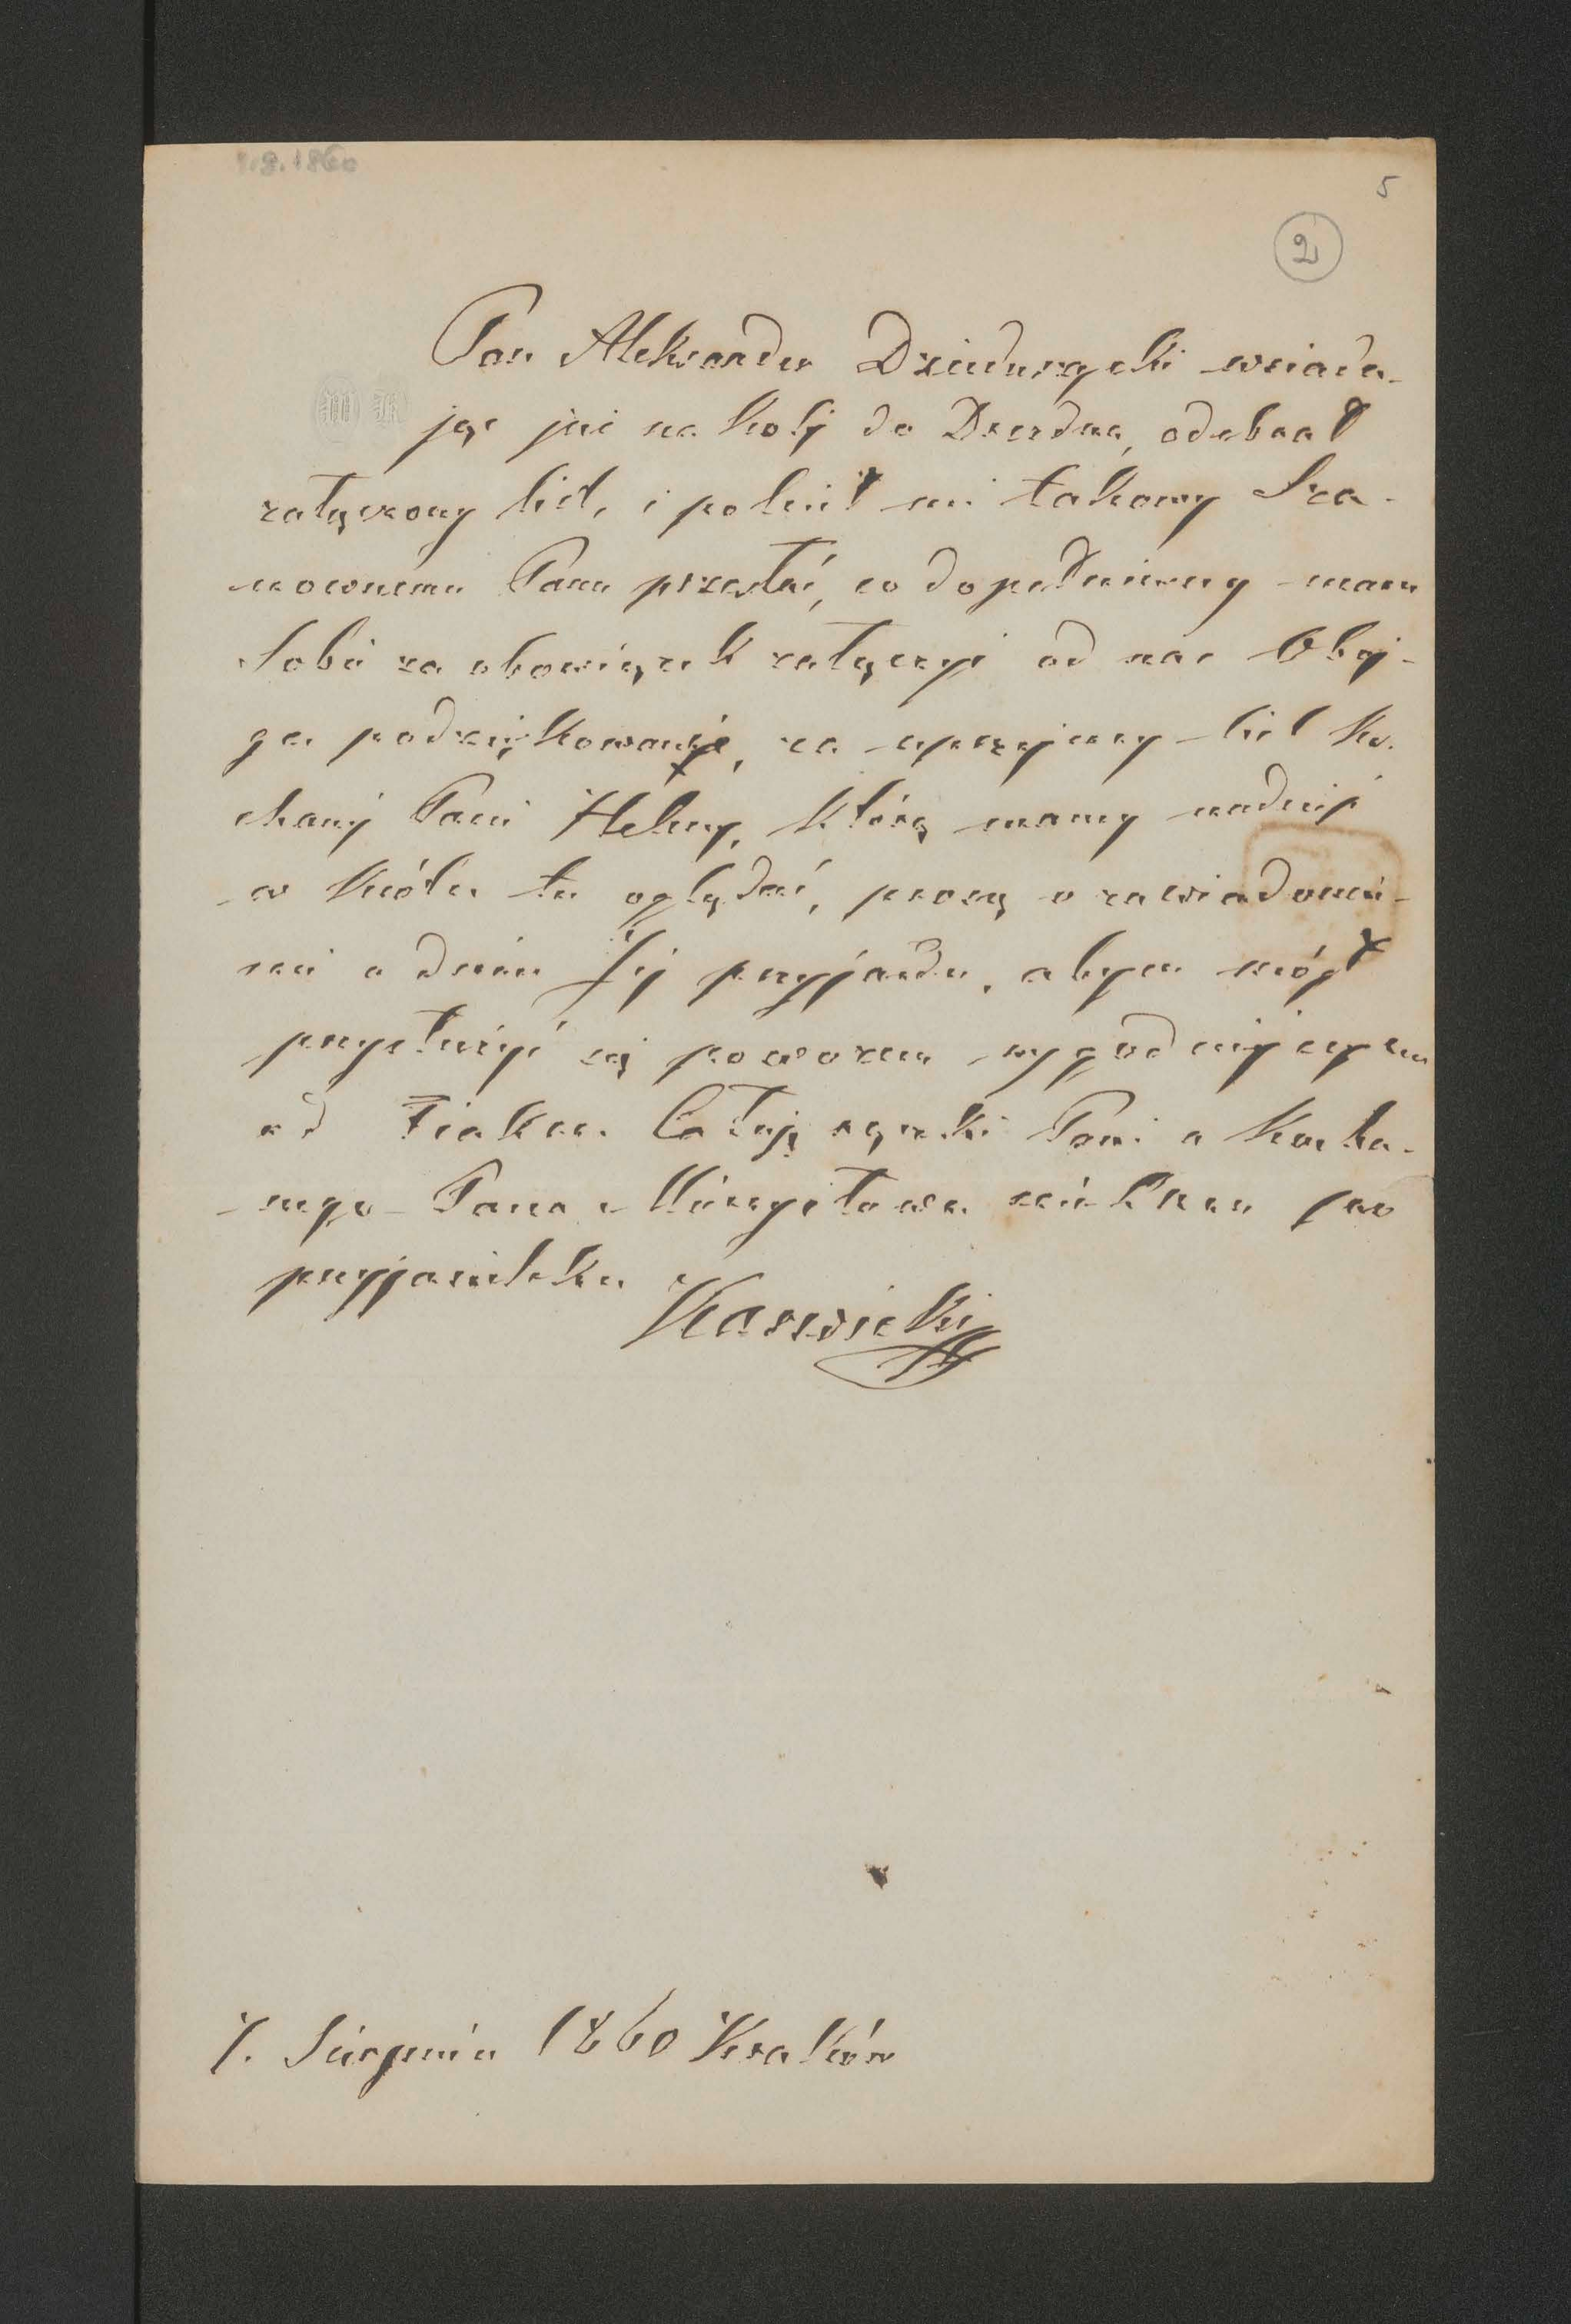 1.8.1860
5
2
Pan Aleksander Dzieduszycki wsiada-
jąc już na kolej do Drezdna, odebrał
załączony list, i polecił mi takowy Sza-
nownemu Panu przesłać, co dopełniwszy mam
Sobie za obowiązek załączyć od nas Oboj-
ga podziękowanie, za uprzejmy list Ko-
chanej Pani Heleny, którą mamy nadzieję
w krótce tu oglądać, proszę o zawiadomie-
nie o dniu Jej przyjazdu, abym mógł
przysłużyć się powozem wygodniejszym
od Fiakra. Całuję rączki Pani a Kocha-
nego Pana Mieczysława ściskam po
przyjacielsku
1. Sierpnia 1860 Kraków